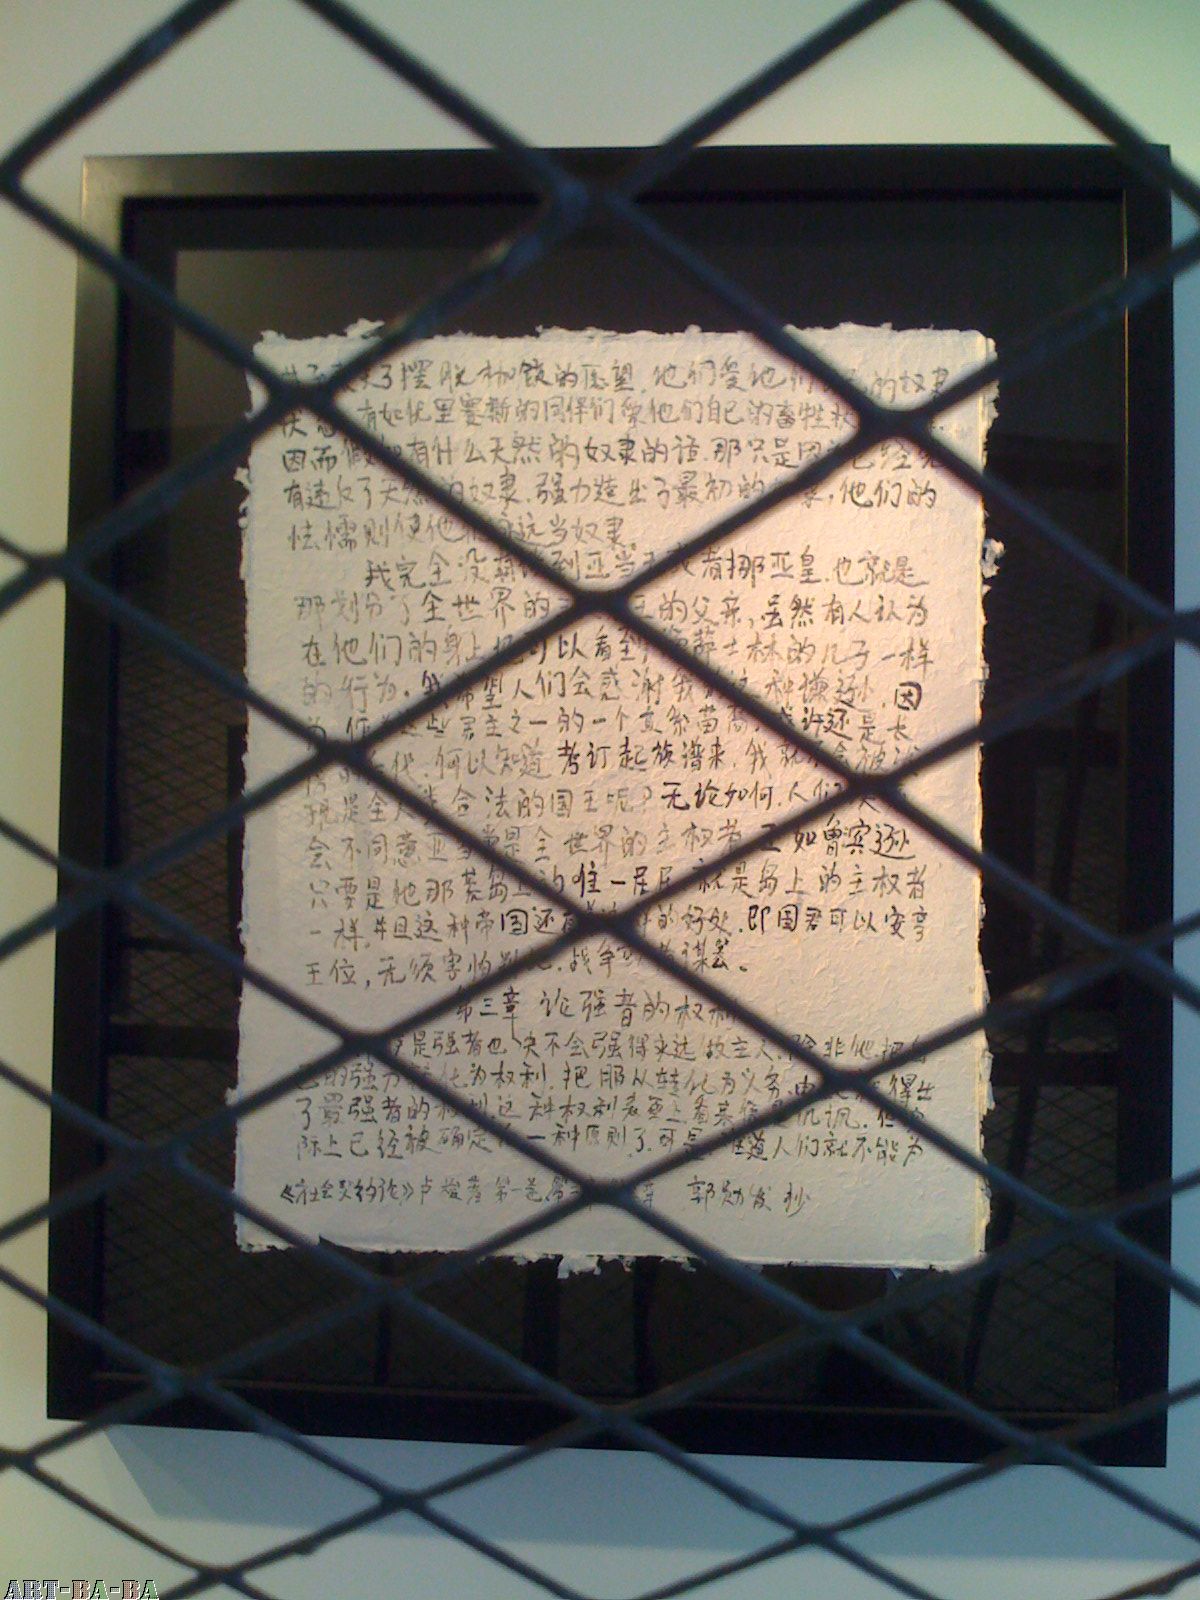 了摆脱枷锁的愿望.他们爱他们的奴隶
有如优里赛斯的同伴们爱他们自己的畜牲状
因而假如有什么天然的奴隶的话.那只是因为已经先
有违反了天然的奴隶.强力造出了最初的奴隶,他们的
怯懦则使他们永远当奴隶。
我完全没有谈到亚当王或者挪亚皇.也就是
那划分了全世界的三大王的父亲,虽然有人认为
在他们的身上也可以看到萨士林的儿子一样
的行为.我希望人们会感谢我的这种谦逊,因
为,作为这些君主之一的一个直系苗裔,或许还是长
房的后代.何以知道考订起族谱来.我就不会被
现是全人类合法的国王呢?无论如何.人们决
会不同意亚当曾是全世界的主权者.正如鲁滨逊
只要是他那荒岛上的唯一居民 就是岛上的主权者
一样.并且这种帝国还有着的好处.即国君可以安享
王位,无须害怕叛乱.战争或者谋篡。
第三章 论强者的权利
是强者也决不会强得永远做主人.除非他把自
己的强力转化为权利.把服从转化为义务.由此得出
了最强者的权利.这种权利表面上看来像是讥讽.但
际上已经被确定为一种原则了.可是.难道人们就不能为
《社会契约论》卢梭著 第一卷 章 郭勋发 抄
ART-BA-BA